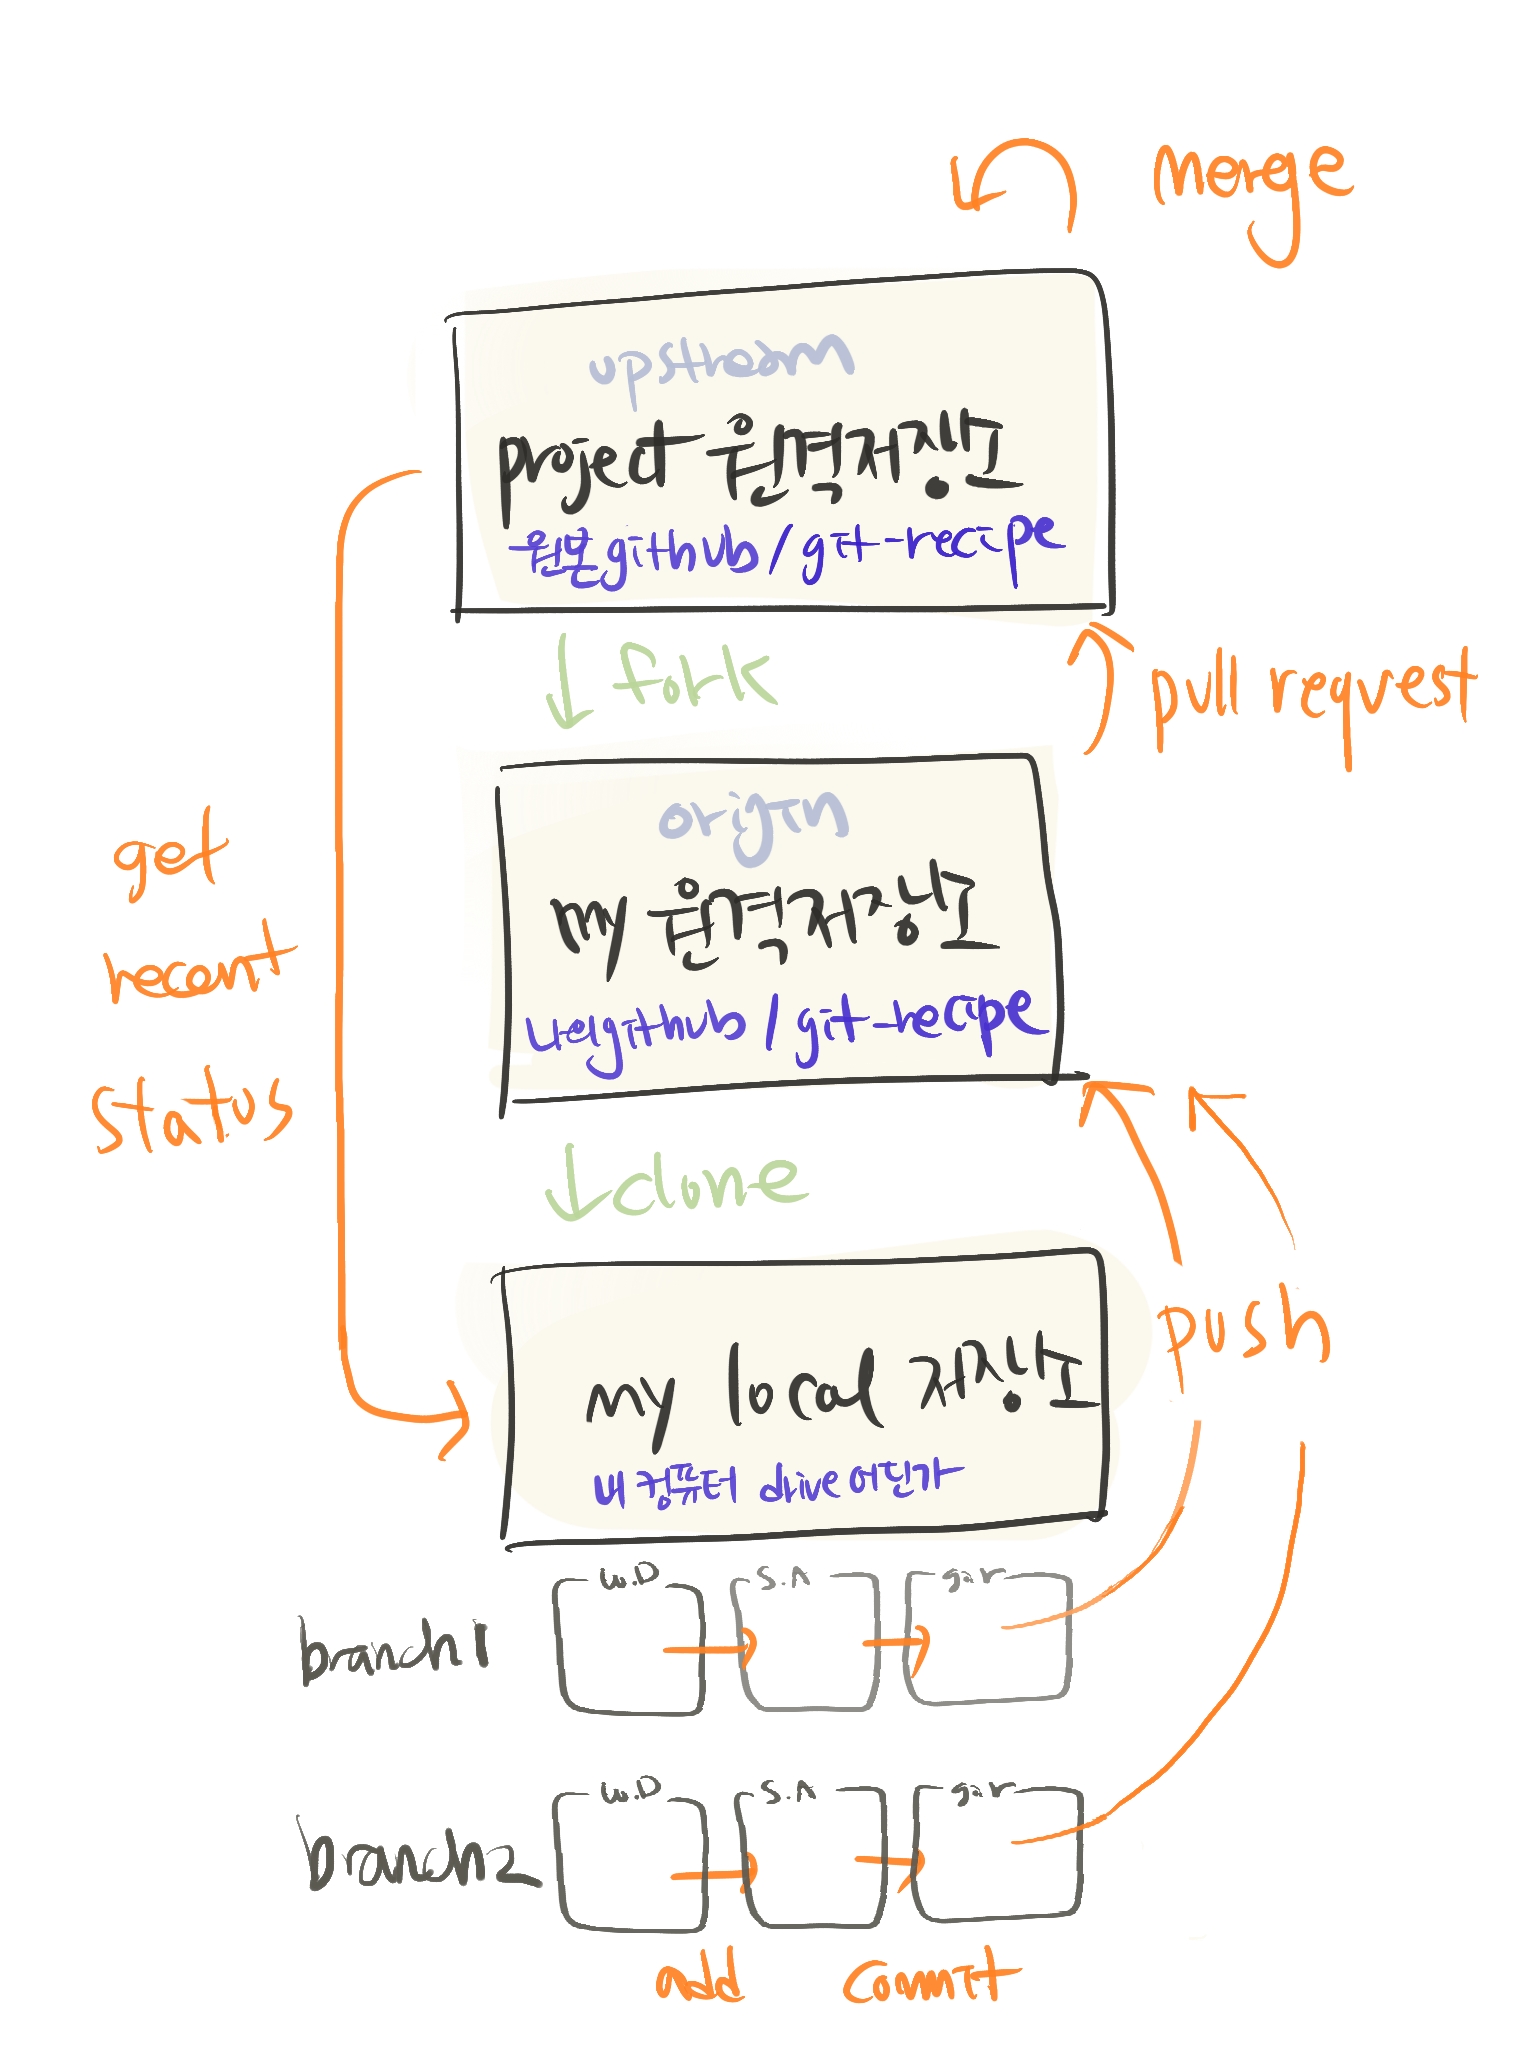 merge
upstream
project 원격저장소
원본github/git-recipe
↓ fork
pull request
origin
my 원격저장소
나의github/git-recipe
get
recent
status
↓clone
push
my local 저장소
내 컴퓨터 drive 어딘가
branch1
W.D
S.A
gir
branch2
W.D
S.A
gir
add
commit